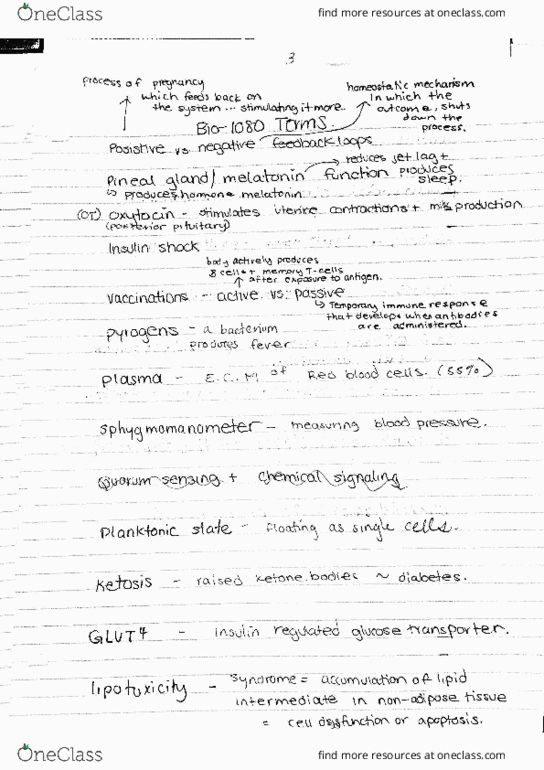 OneClass
find more resources at oneclass.com
3
process of pregnancy
which feeds back on
the system ... stimulating it more.
homeostatic mechanism
in which the
outcome, shuts
down the
process.
Bio-1080 Terms.
Posistive vs negative feedback loops
Pineal gland/melatonin function
reduces jet lag +
produces
sleep.
↳ produces hormone melatonin
(OT) oxytocin - stimulates uterine contractions + milk production
(posterior pituitary)
Insulin shock
body actively produces
B cells + memory T-cells
after exposure to antigen.
Vaccinations - active vs. passive
↳ Temporary immune response
that develops when antibodies
are administered.
pyrogens - a bacterium
produces fever
plasma - E.C.M of Red blood cells. (55%)
sphygmomanometer - measuring blood pressure.
Quorum sensing + chemical signaling
Planktonic state - floating as single cells.
Ketosis - raised ketone bodies ~ diabetes.
GLUT4 - insulin regulated glucose transporter.
lipotoxicity - syndrome = accumulation of lipid
intermediate in non-adipose tissue
= cell dysfunction or apoptosis.
OneClass
find more resources at oneclass.com